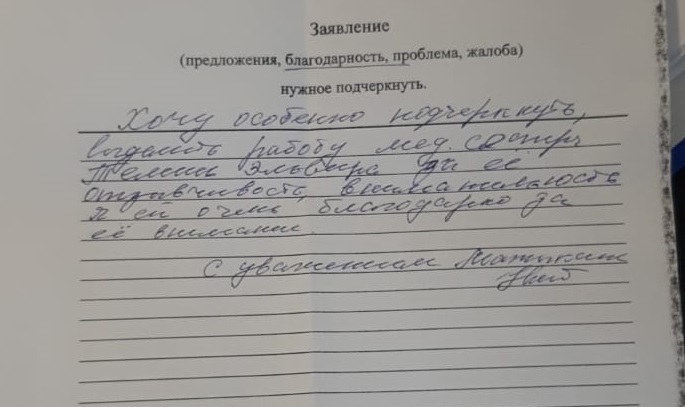 Заявление
(предложения, благодарность, проблема, жалоба)
нужное подчеркнуть.
Хочу особенно подчеркнуть,
выделить работу мед. сестры
Эльвира за её
отзывчивость, внимательность
я ей очень благодарна за
её внимание.
С уважением